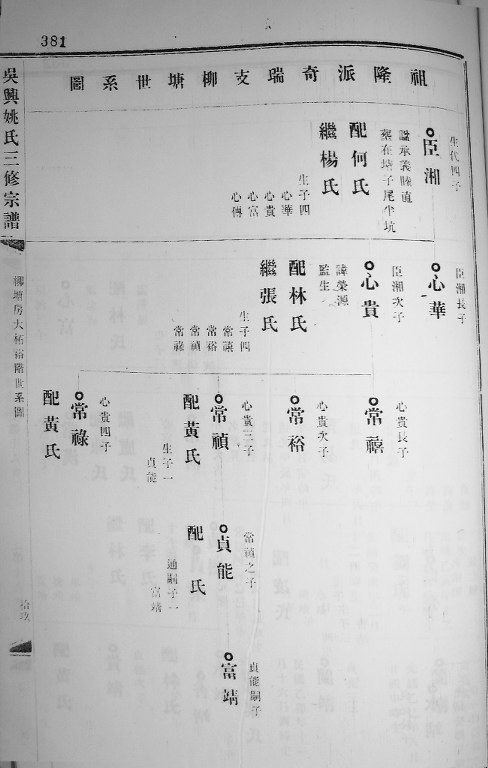 381
祖隆派奇瑞支柳塘世系圖
吳興姚氏三修宗譜
柳塘房大柘裕階世系圖
生代四子
臣湘
諡承義睦直
塟在塘子尾半坑
配何氏
繼楊氏
生子四
心華
心貴
心富
心傳
臣湘長子
心華
臣湘次子
心貴
諱榮源
監生
配林氏
繼張氏
生子四
常禧
常裕
常禎
常祿
心貴長子
常禧
心貴次子
常裕
心貴三子
常禎
配黃氏
生子一
貞能
心貴四子
常祿
配黃氏
常禎之子
貞能
配 氏
過嗣子一
富靖
貞能嗣子
富靖